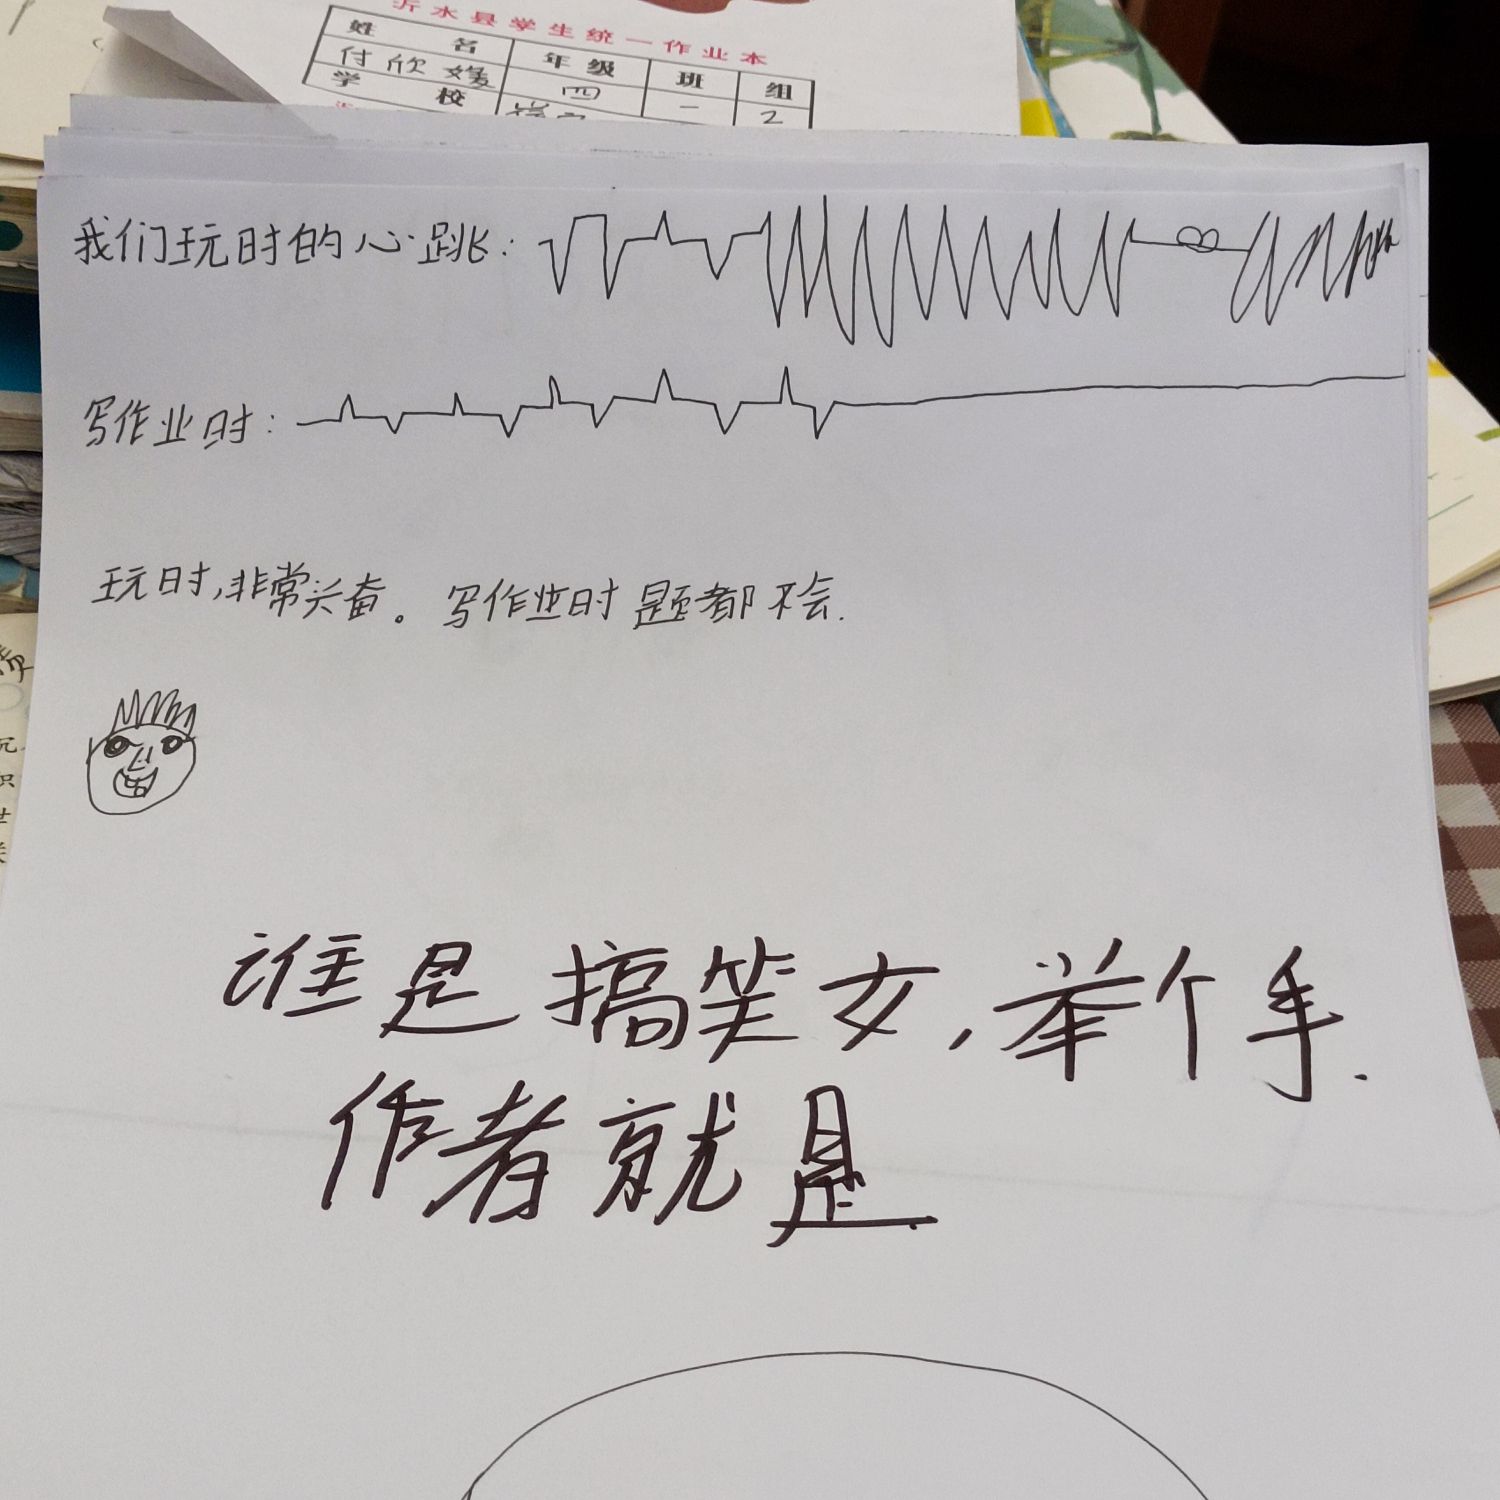 沂水县学生统一作业本
姓 名 付欣媛 年级 四 班 一 组 2
学 校
我们玩时的心跳:
写作业时:
玩时,非常兴奋。写作业时题都不会.
谁是搞笑女,举个手.
作者就是